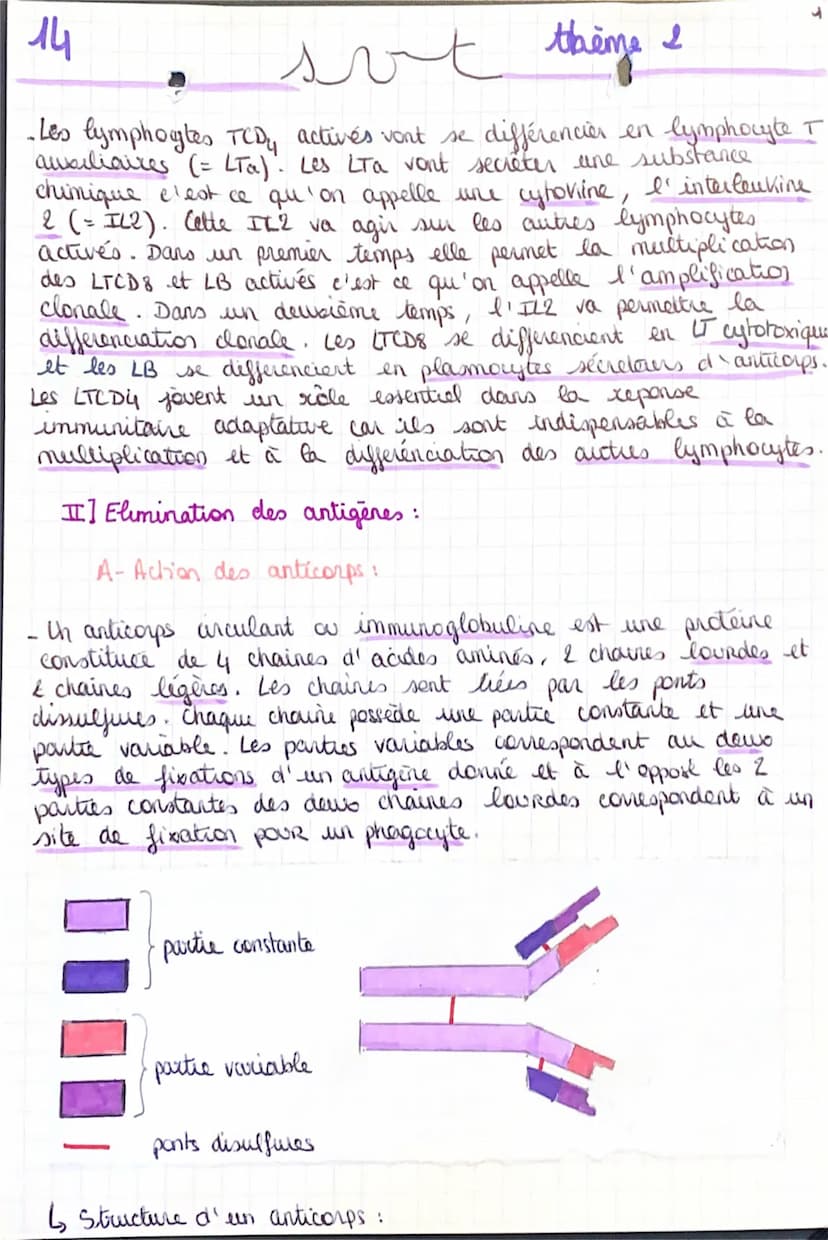 14
svt
thème 2
1
- Les lymphocytes TCD4 activés vont se différencier en lymphocyte T
auxiliaires (= LTa). Les LTa vont secréter une substance
chimique c'est ce qu'on appelle une cytokine, l'interleukine
2 (= IL2). Cette IL2 va agir sur les autres lymphocytes
activés. Dans un premier temps elle permet la multiplication
des LTCD8 et LB activés c'est ce qu'on appelle l'amplification
clonale. Dans un deuxième temps, l'IL2 va permettre la
différenciation clonale. Les LTCD8 se différencient en LT cytotoxique
et les LB se differencient en plasmocytes sécréteurs d'anticorps.
Les LTCD4 jouent un rôle essentiel dans la reponse
immunitaire adaptative car ils sont indispensables à la
multiplication et à la différenciation des autres lymphocytes.
II] Elimination des antigènes :
A- Action des anticorps :
- Un anticorps circulant ou immunoglobuline est une protéine
constituée de 4 chaines d'acides aminés, 2 chaines lourdes et
2 chaines légères. Les chaines sont liées par les ponts
dissulfures. Chaque chaine possède une partie constante et une
partie variable. Les parties variables correspondent au deux
types de fixations d'un antigène donné et à l'opposé les 2
parties constantes des deux chaines lourdes correspondent à un
site de fixation pour un phagocyte.
partie constante
partie variable
ponts disulfures
↳ Structure d'un anticorps :